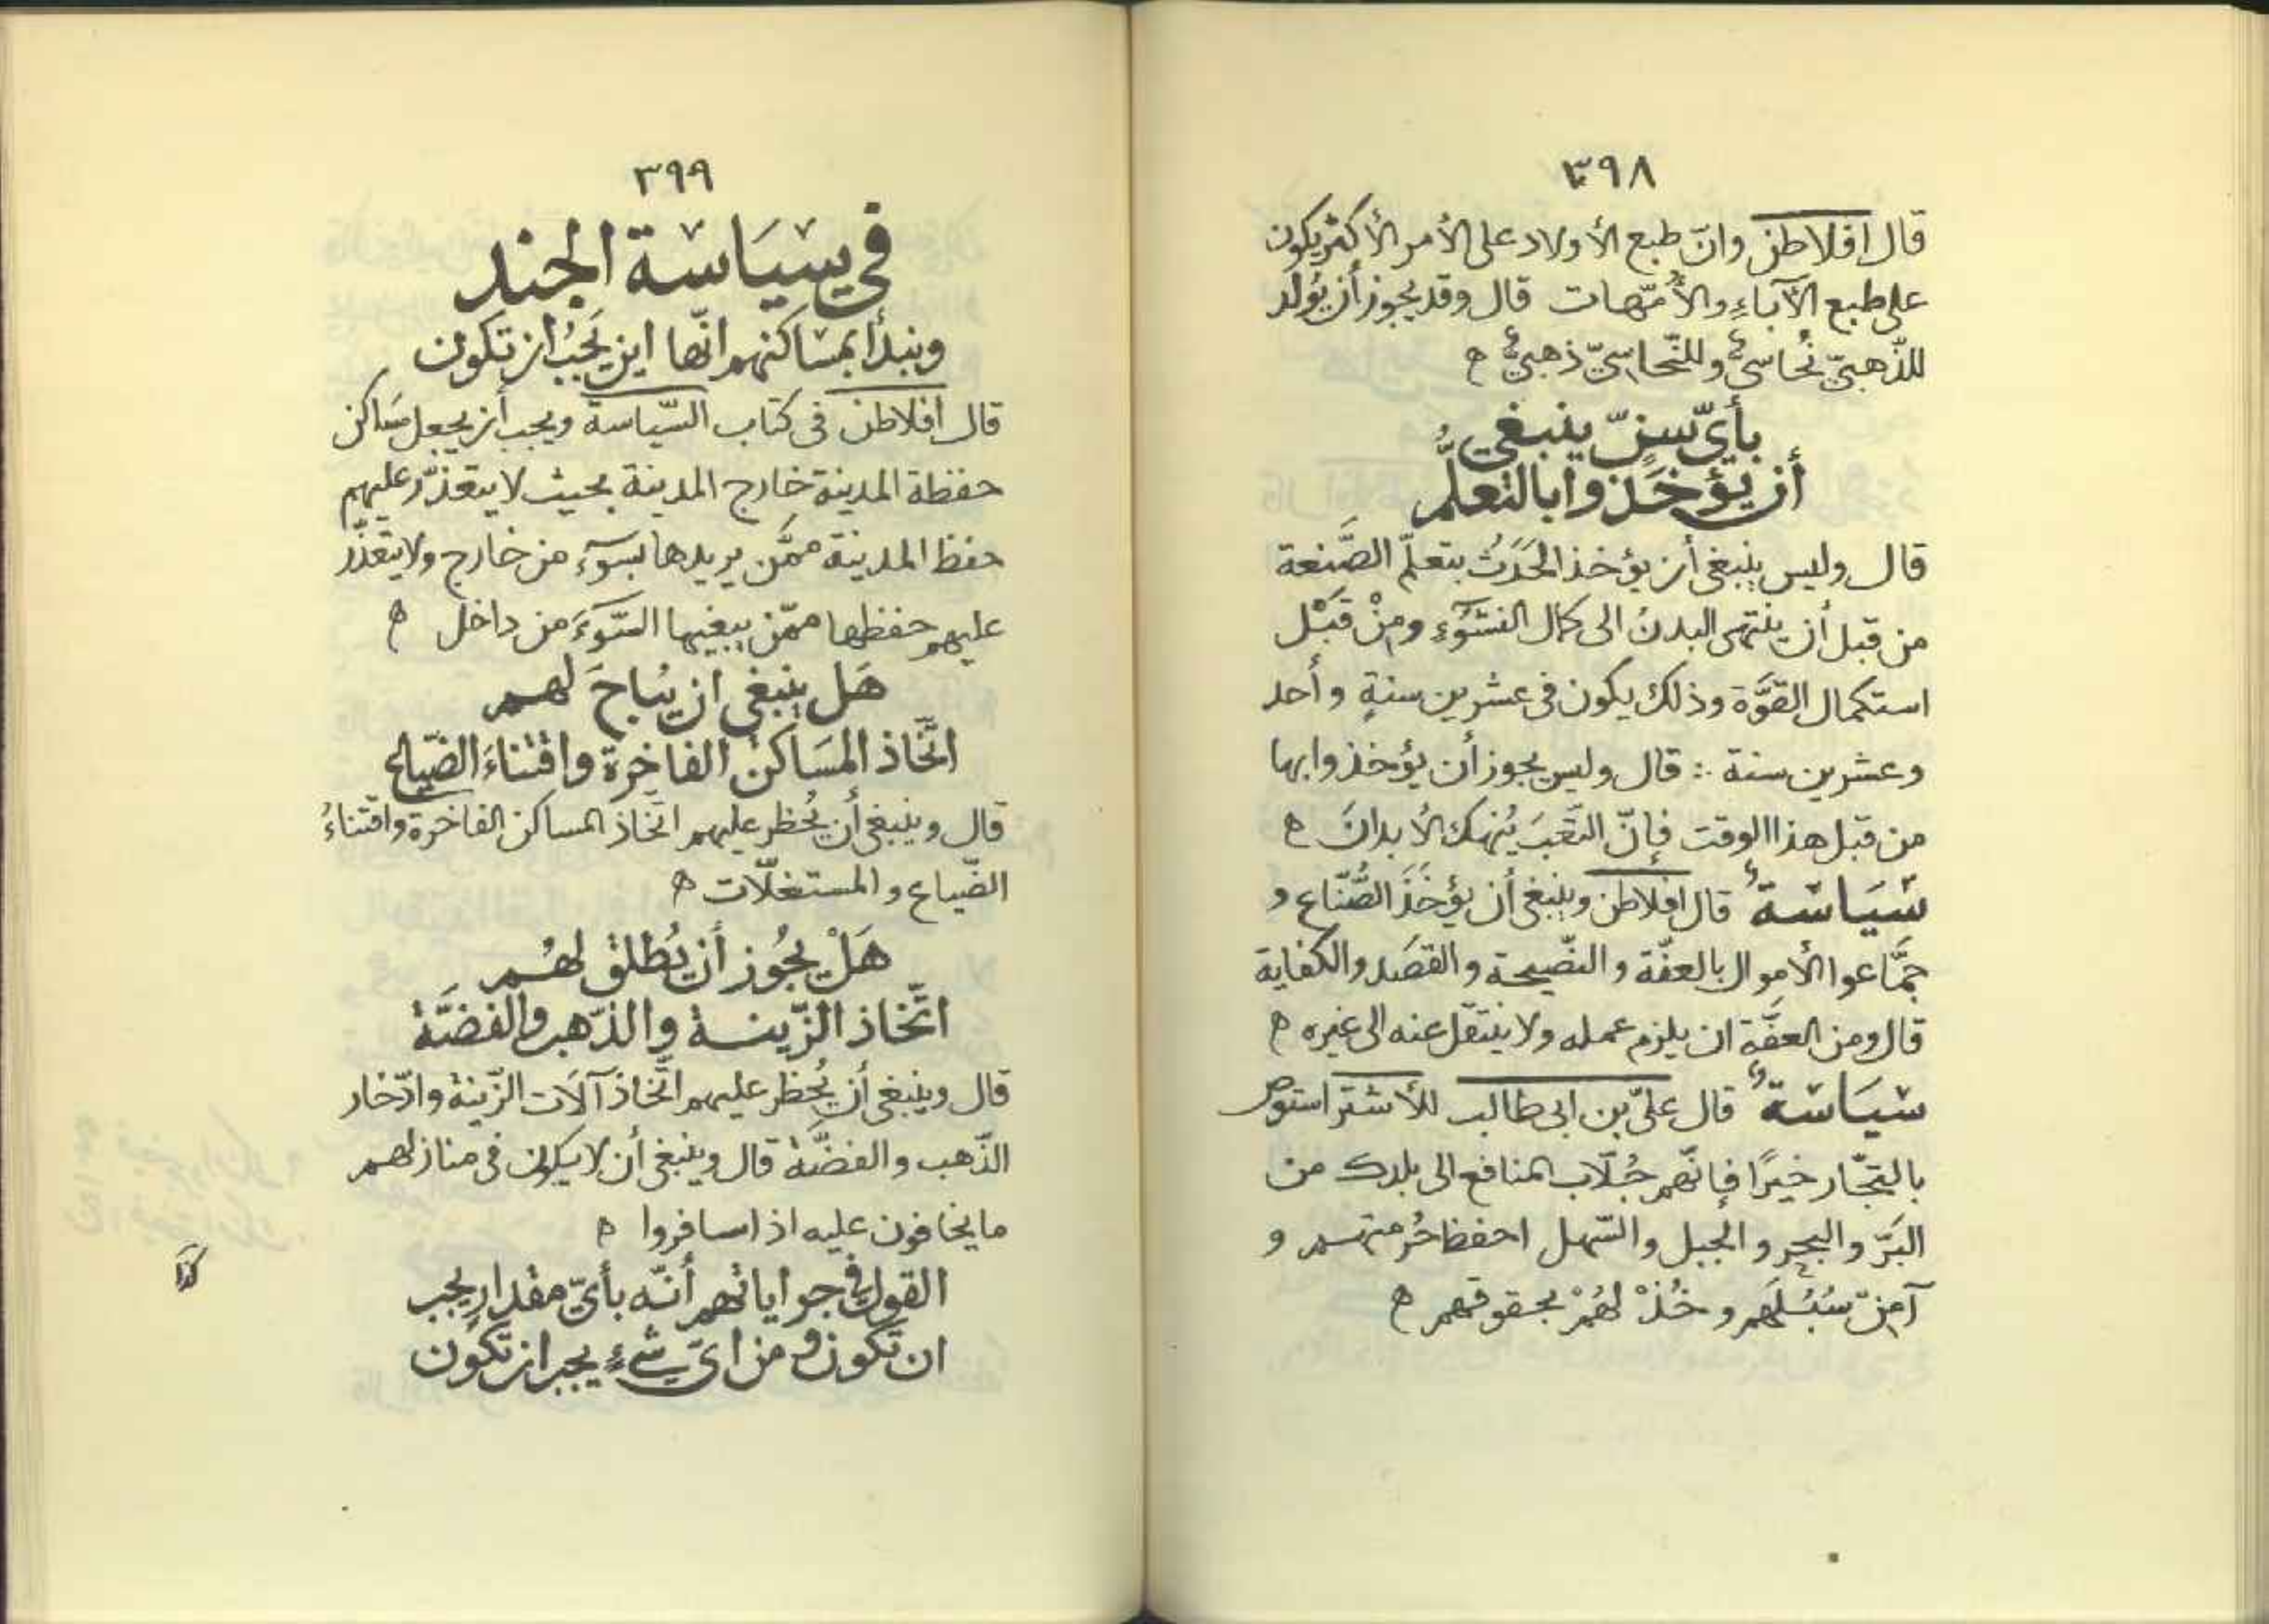 ٣٩٨
قال افلاطن وانّ طبع الأولاد على الأمر الأكثر يكون
على طبع الآباءِ والأُمّهات قال وقد يجوز أن يُولد
للذّهبيّ نُحاسيٌّ وللنّحاسيّ ذهبيٌّ ه
بأيّ سنٍّ ينبغي
أن يؤخَذوا بالتعلُّم
قال وليس ينبغي أن يؤخذ الحَدَثُ بتعلّم الصَّنعة
من قبل أن ينتهى البدنُ الى كمال النشوءِ ومِنْ قَبْل
استكمال القوَّة وذلك يكون فى عشرين سنةٍ وأحد
وعشرين سنة ∴ قال وليس يجوز أن يؤخذوا بها
من قبل هذا الوقت فإنّ التَّعَبَ يُنهك الأبدانَ ه
سَيَاسَةٌ قال افلاطن وينبغى أن يؤخَذَ الصُّنّاع و
جمَّاعوا الأموال بالعفّة والنّصيحة والقصَد والكفاية
قال ومن العفَّة ان يلزم عمله ولا ينتقل عنه الى غيره ه
سيَاسَةٌ قال علىّ بن ابى طالب للأشتر استوص
بالتجّار خيرًا فإنّهم جُلّاب المنافع الى بلدك من
البَرّ والبحر والجبل والسّهل احفظ حُرمتهم و
آمِنْ سُبُلَهم وخُذْ لهُمْ بحقوقهم ه
٣٩٩
في سيَاسة الجند
ونبدأ بمسَاكنهم انّها اين يَجبُ ان تكون
قال افلاطن فى كتاب السّياسة ويجب أن يجعل مسَاكن
حفظة المدينة خارج المدينة بحيث لا يتعذّر عليهم
حفظ المدينة ممَّن يريدها بسوءٍ من خارج ولا يتعذّر
عليهم حفظها ممّن يبغيها السّوءَ من داخل ه
هَل ينبغى ان يُباحَ لهم
اتَّخاذ المسَاكن الفاخرة واقتناءَ الضّياع
قال وينبغى أن يُحظر عليهم اتّخاذ المساكن الفاخرة واقتناءُ
الضّياع والمستغلّات ه
هَلْ يجُوز أن يُطلق لهُم
اتّخاذ الزّينة والذّهب والفضَّة
قال وينبغى أن يُحظر عليهم اتّخاذ آلات الزّينة وادّخار
الذّهب والفضَّة قال وينبغى أن لا يكون فى منازلهم
ما يخافون عليه اذا سافروا ه
القول في جراياتهم أنّه بأيّ مقدارٍ يجب
ان تكون ومن ايّ شىءٍ يجب ان تكون